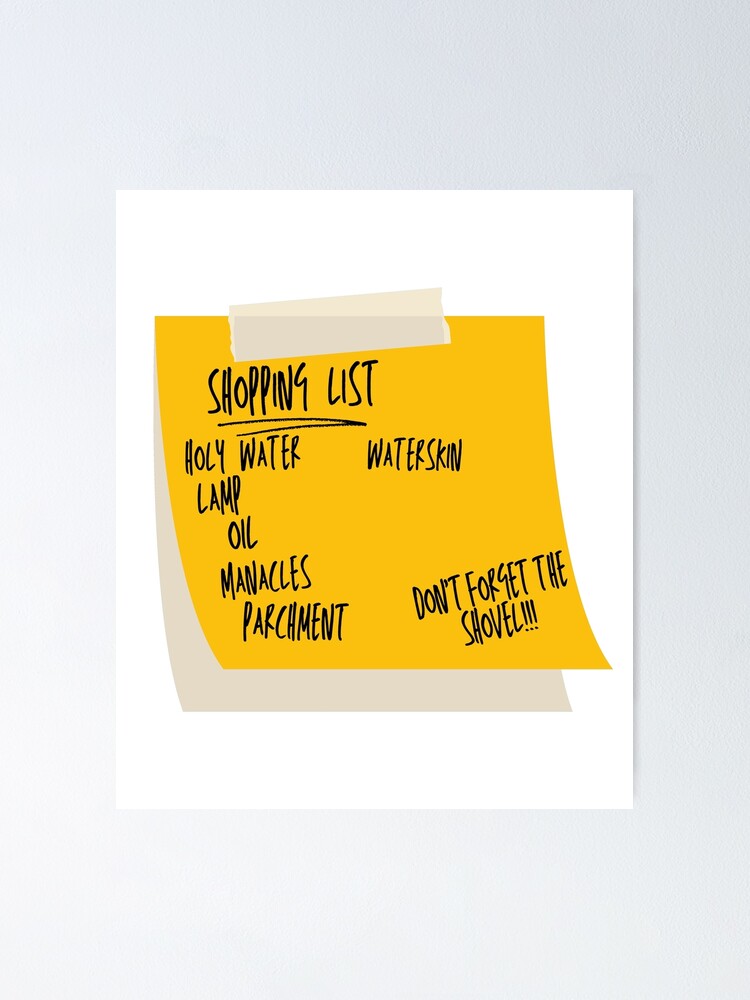 SHOPPING LIST
HOLY WATER
LAMP
OIL
MANACLES
PARCHMENT
WATERSKIN
DON'T FORGET THE
SHOVEL!!!